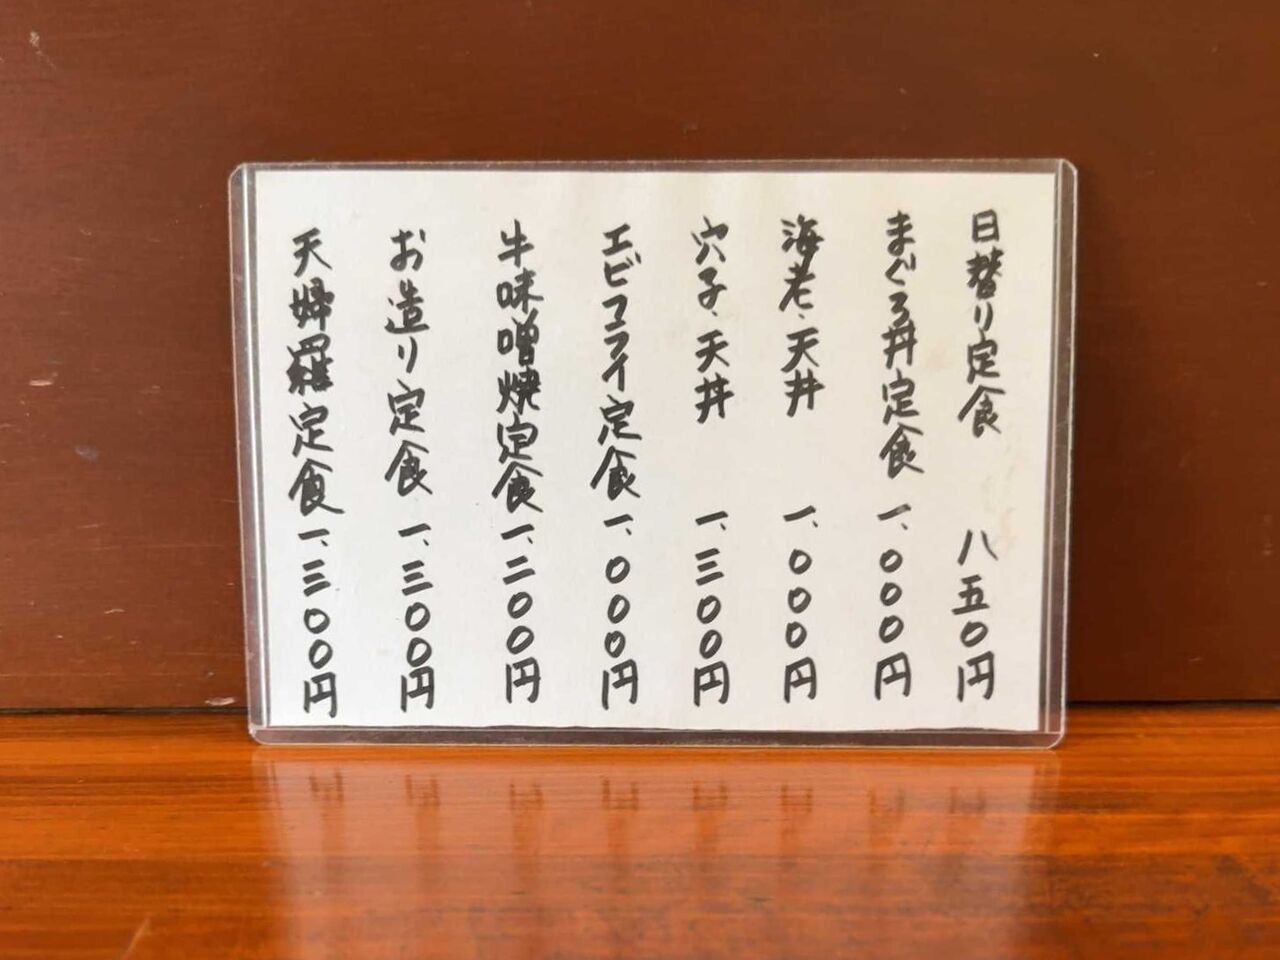 日替り定食 八五〇円
まぐろ丼定食 一、〇〇〇円
海老天丼 一、〇〇〇円
穴子天丼 一、三〇〇円
エビフライ定食 一、〇〇〇円
牛味噌焼定食 一、二〇〇円
お造り定食 一、三〇〇円
天婦羅定食 一、三〇〇円